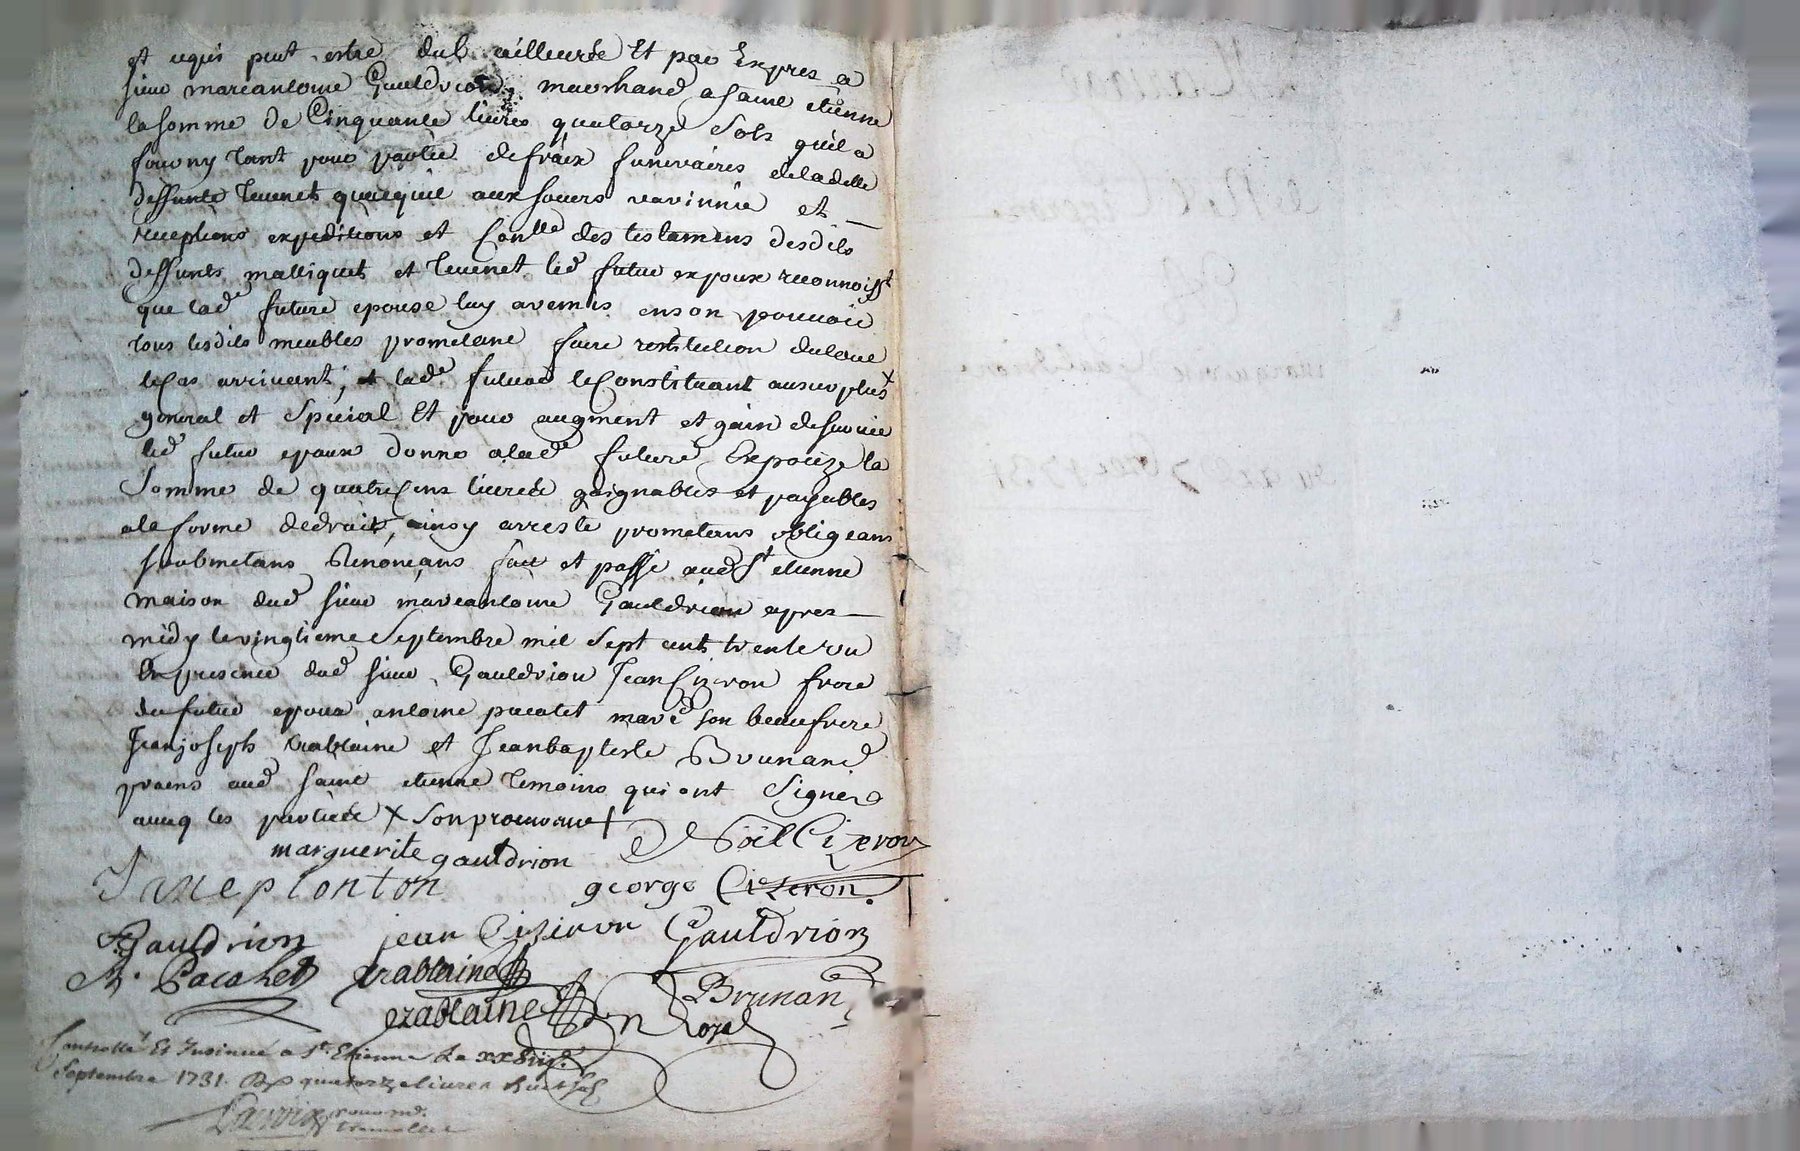 et ce qui peut estre dub ailleurs Et par Expres a
sieur marcantoine Gauldrion marchand a saint etienne
la somme de Cinquante livres quatorze Sols qu'il a
fourny tant pour partie de fraix funeraires de ladelle
deffunte Tevenet quoequil aux soeurs et
receptions expeditions et Con.lle des testamens desdits
deffunts malliquet et Tevenet led futur expoux reconnoisst
que lad.e future epouse luy a remis en son pouvoir
tous lesdits meubles prometant faire restitution du tout
le Cas arrivant, et lad.e future le Constituant au surplus x
general et Special Et pour augment et gain de survie
led futur epoux donne a lad.e future Expouze la
Somme de quatre Cens livres gaignables et payables
a la forme de droit, ainsy arresté prometans obligeans
soubmetans Renonçans fait et passé aud St etienne
maison dud sieur marcantoine Gauldrion apres
midy le vingtieme Septembre mil Sept cents trente un
En presence dud sieur Gauldrion Jean Cizeron frere
du futur epoux antoine pacalet mar.d son beaufrere
Jean joseph crablaine et Jean baptiste Brunand
praens aud saint etienne Temoins qui ont Signé
avecq les parties x son procureur +
marguerite gauldrion Nöel Cizeron
george Cizeron
Gauldrion jean Cizeron Gauldrion
Pacalet crablaine
crablaine Brunand
Controllé Et Insinué a St. Etienne Le
Septembre 1731. Rx quatorze livres huit sols